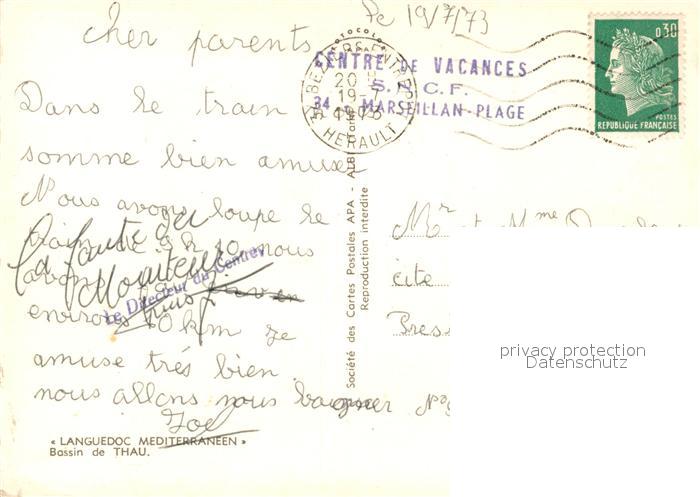 Le 19/7/73
cher parents
CENTRE DE VACANCES
S.N.C.F.
34 - MARSEILLAN-PLAGE
BEZIERS
20 H
19-7
1973
HERAULT
0,30
POSTES
REPUBLIQUE FRANÇAISE
Dans le train
somme bien amuse
Nous avons loupe le
train de 9h10 nous
avons
environs 10 km je
amuse trés bien
nous allons nous baigner
Joel
la faute du
Moniteur
Le Directeur du Centre
Société des Cartes Postales APA - ALBI (Tarn)
Reproduction interdite
Mr et Mme
cite
Bress
N°
privacy protection
Datenschutz
« LANGUEDOC MEDITERRANEEN »
Bassin de THAU.